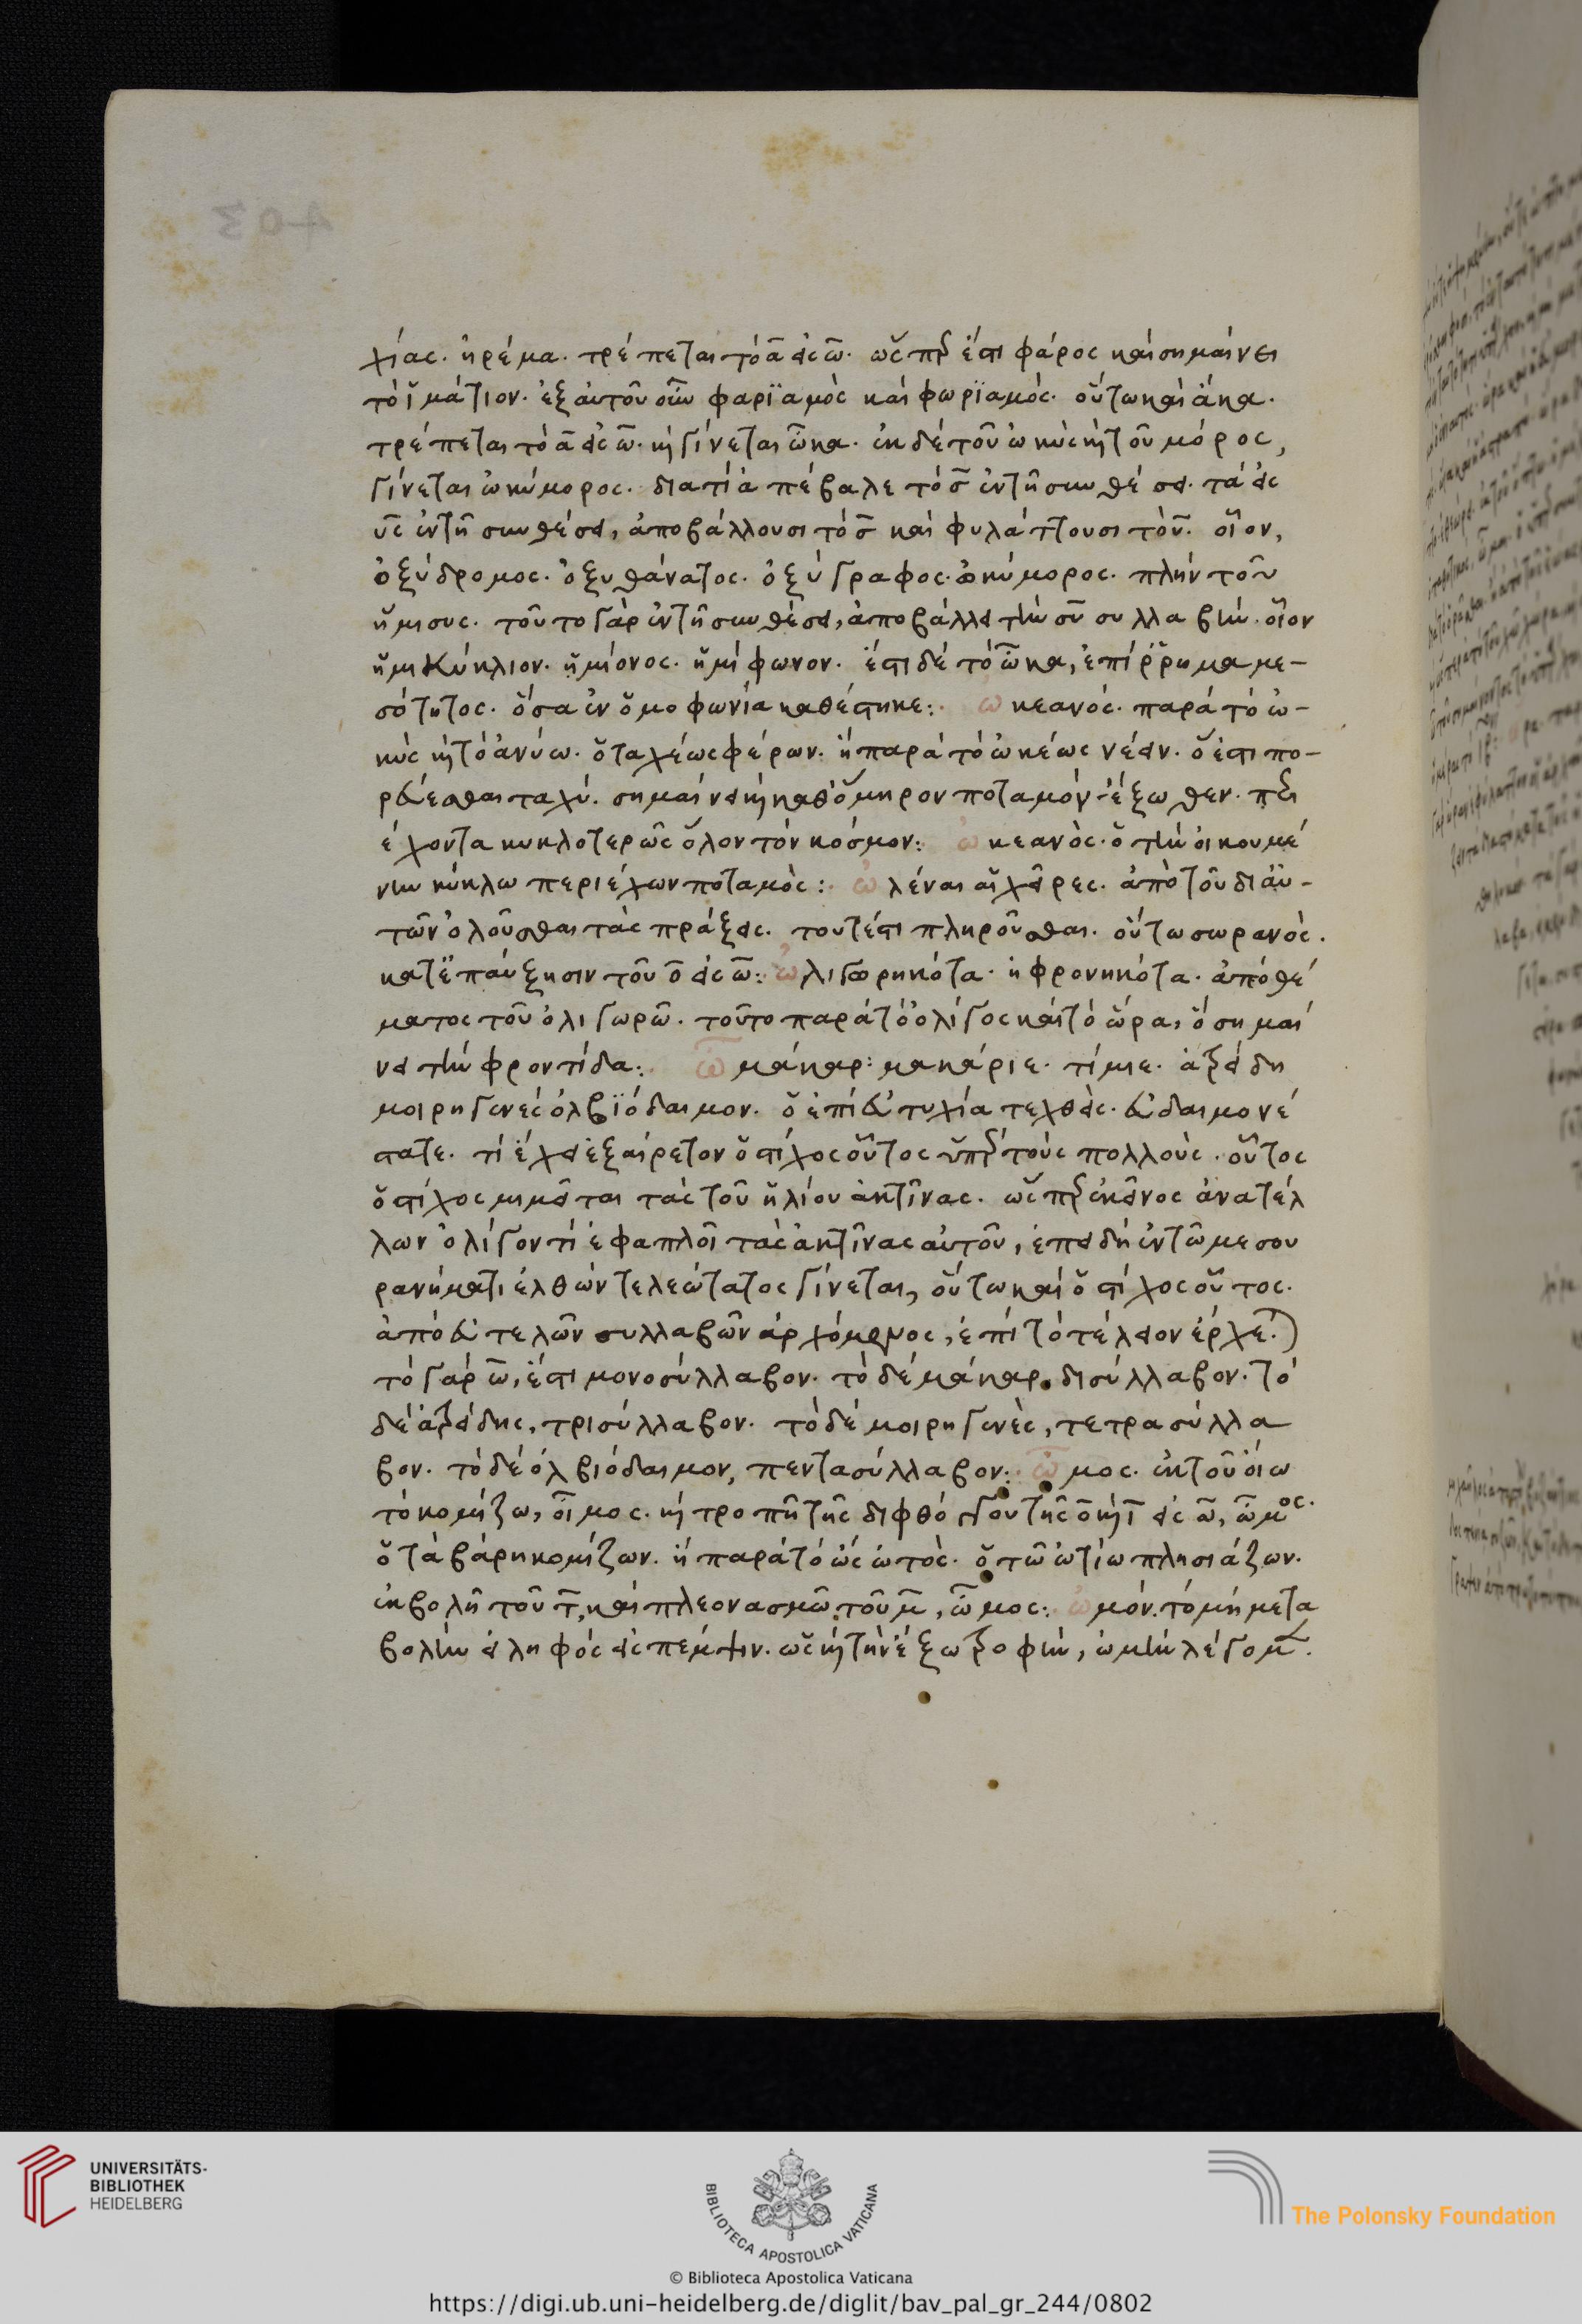 χίας. ἠρέμα. τρέπεται τὸ ᾱ εἰς ω̄. ὥσπερ ἐστὶ φάρος καὶ σημαίνει
τὸ ἱμάτιον. ἐξ αὐτοῦ οὖν φαρϊαμὸς καὶ φωρϊαμός. οὕτω καὶ ἄκα.
τρέπεται τὸ ᾱ εἰς ω̄. καὶ γίνεται ὦκα. ἐκ δὲ τοῦ ὠκὺς καὶ τοῦ μόρος,
γίνεται ὠκύμορος. διατί ἀπέβαλε τὸ σ̄ ἐν τῇ συνθέσει. τὰ εἰς
ῡς ἐν τῇ συνθέσει, ἀποβάλλουσι τὸ σ̄ καὶ φυλάττουσι τὸ ῡ. οἷον,
ὀξύδρομος. ὀξυθάνατος. ὀξύγραφος. ὠκύμορος. πλὴν τοῦ
ἥμισυς. τοῦτο γὰρ ἐν τῇ συνθέσει, ἀποβάλλει τὴν σῡ συλλαβήν. οἷον
ἡμικύκλιον. ἡμίονος. ἡμίφωνον. ἔστι δὲ τὸ ὦκα, ἐπίρρωμα με-
σότητος. ὅσα ἐν ὁμοφωνία καθέστηκε: ὠκεανός. παρὰ τὸ ὠ-
κὺς καὶ τὸ ἀνύω. ὁ ταχέως φέρων. ἢ παρὰ τὸ ὠκέως νέειν. ὅ ἐστι πο-
ρεύεσθαι ταχύ. σημαίνει καὶ καθ' ὅμηρον ποταμόν ἔξωθεν. περι
έχοντα κυκλοτερῶς ὅλον τὸν κόσμον: ὠκεανὸς. ὁ τὴν οἰκουμέ
νην κύκλω περιέχων ποταμὸς: ὠλέναι αἱ χεῖρες. ἀπὸ τοῦ δι αὐ-
τῶν ὁλοῦσθαι τὰς πράξεις. τουτέστι πληροῦσθαι. οὕτως ωρανὸς.
κατ' ἐπαύξησιν τοῦ ο̄ εἰς ω̄: ὠλιγωρηκότα. ἠφρονηκότα. ἀπὸ θέ
ματος τοῦ ὀλιγωρῶ. τοῦτο παρὰ τὸ ὀλίγος καὶ τὸ ὤρα, ὃ σημαί
νει τὴν φροντίδα: ὦ μάκαρ: μακάριε. τίμιε. ἀτρείδη
μοιρηγενές ὀλβϊόδαιμον. ὁ ἐπὶ εὐτυχία τεχθείς. εὐδαιμονέ
στατε. τί ἔχει ἐξαίρετον ὁ στίχος οὗτος ὑπὲρ τοὺς πολλοὺς. οὗτος
ὁ στίχος μιμεῖται τὰς τοῦ ἡλίου ἀκτῖνας. ὥσπερ ἐκεῖνος ἀνατέλ
λων ὀλίγον τί ἐφαπλοῖ τὰς ἀκτῖνας αὐτοῦ, ἐπειδὴ ἐν τῶ μεσου
ρανήματι ἐλθὼν τελεώτατος γίνεται, οὕτω καὶ ὁ στίχος οὗτος.
ἀπὸ εὐτελῶν συλλαβῶν ἀρχόμενος, ἐπὶ τὸ τέλειον ἔρχεται.
τὸ γὰρ ω̄, ἔστι μονοσύλλαβον. τὸ δὲ μάκαρ. δισύλλαβον. τὸ
δὲ ἀτρείδης, τρισύλλαβον. τὸ δὲ μοιρηγενὲς, τετρασύλλα
βον. τὸ δὲ ὀλβιόδαιμον, πεντασύλλαβον: ὦμος. ἐκ τοῦ οἴω
τὸ κομίζω, οἶμος. καὶ τροπῇ τῆς διφθόγγου τῆς ο̄ καὶ ῑ εἰς ω̄, ὦμος.
ὁ τὰ βάρη κομίζων. ἢ παρὰ τὸ ὠς ὠτὸς. ὁ τῶ ὠτίω πλησιάζων.
ἐκβολῇ τοῦ τ̄, καὶ πλεονασμῶ τοῦ μ̄, ὦμος: ὠμόν. τὸ μὴ μετα
βολὴν εἰληφός εἰς πέμψιν. ὡς καὶ τὴν ἔξω τροφὴν, ὠμὴν λέγομεν.
UNIVERSITÄTS-
BIBLIOTHEK
HEIDELBERG
BIBLIOTECA APOSTOLICA VATICANA
The Polonsky Foundation
© Biblioteca Apostolica Vaticana
https://digi.ub.uni-heidelberg.de/diglit/bav_pal_gr_244/0802